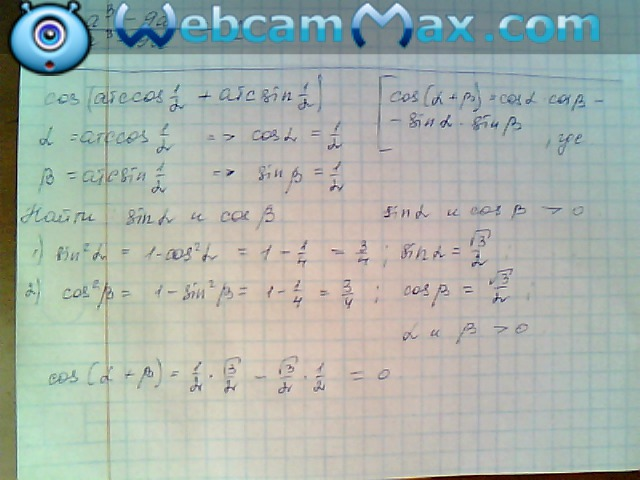 WebcamMax.com
cos(arccos 1/2 + arcsin 1/2) [cos(α+β) = cosα cosβ -
- sinα · sinβ
, где
α = arccos 1/2 => cosα = 1/2
β = arcsin 1/2 => sinβ = 1/2
Найти sinα и cosβ sinα и cosβ > 0
1) sin²α = 1 - cos²α = 1 - 1/4 = 3/4 ; sinα = √3/2 ;
2) cos²β = 1 - sin²β = 1 - 1/4 = 3/4 ; cosβ = √3/2 ;
α и β > 0
cos(α + β) = 1/2 · √3/2 - √3/2 · 1/2 = 0